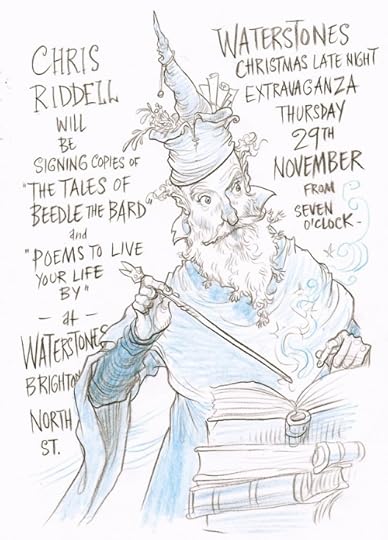 CHRIS
RIDDELL
WILL
BE
SIGNING COPIES OF
"THE TALES OF
BEEDLE THE BARD"
and
"POEMS TO LIVE
YOUR LIFE
BY"
— at —
WATERSTONES
BRIGHTON
NORTH
ST.
WATERSTONES
CHRISTMAS LATE NIGHT
EXTRAVAGANZA
THURSDAY
29TH
NOVEMBER
FROM
SEVEN
O'CLOCK -